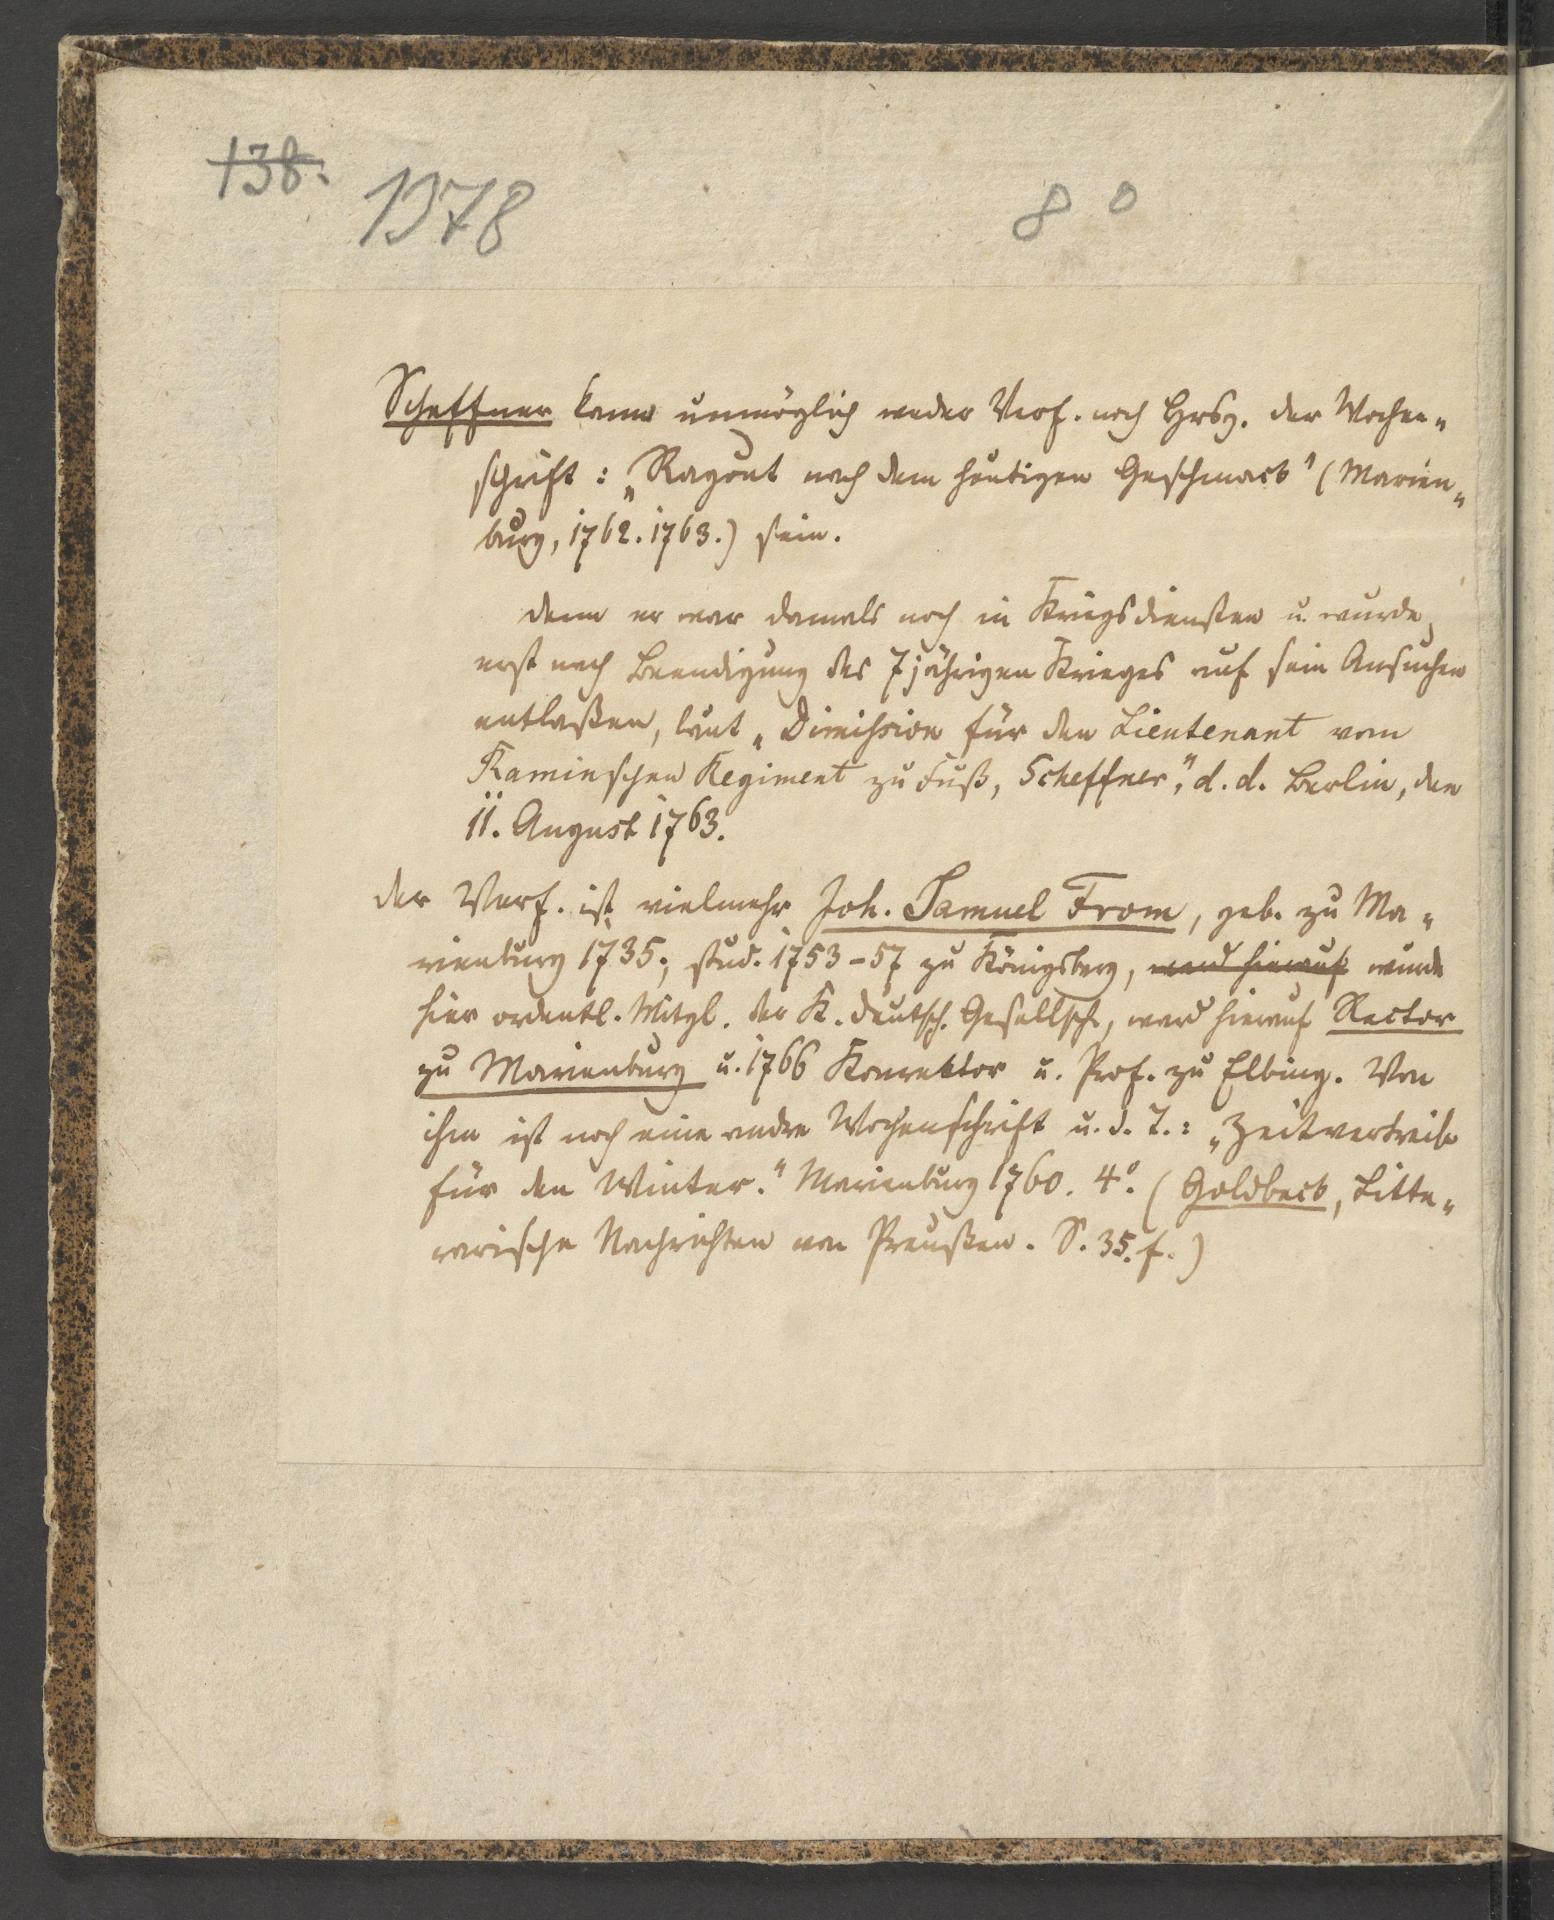 138.
1378
8°
Scheffner kann unmöglich weder Verf. noch Hrsg. der Wochen„
schrift: „Ragout nach dem heutigen Geschmack“ (Marien„
burg, 1762. 1763.) sein.
denn er war damals noch in Kriegsdiensten u. wurde,
erst nach Beendigung des 7jährigen Krieges auf sein Ansuchen
entlaßen, laut „Dimission für den Lieutenant vom
Kaminschen Regiment zu Fuß, Scheffner“, d. d. Berlin, den
11. August 1763.
der Verf. ist vielmehr Joh. Samuel From, geb. zu Ma„
rienburg 1735., stud. 1753-57 zu Königsberg, ward hierauf wurde
hier ordentl. Mitgl. der K. deutsch. Gesellsch., ward hierauf Rector
zu Marienburg u. 1766 Konrektor u. Prof. zu Elbing. Von
ihm ist noch eine andre Wochenschrift u. d. T.: „Zeitvertreib
für den Winter.“ Marienburg 1760. 4°. (Goldbeck, Litte„
rarische Nachrichten von Preußen. S. 35. f.)